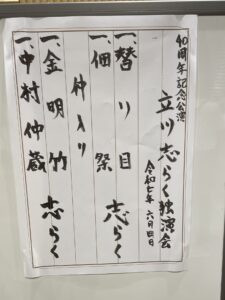 40周年記念公演
立川志らく独演会
令和七年 六月四日
一、替り目 志らく
一、佃祭
仲入り
一、金明竹 志らく
一、中村仲蔵